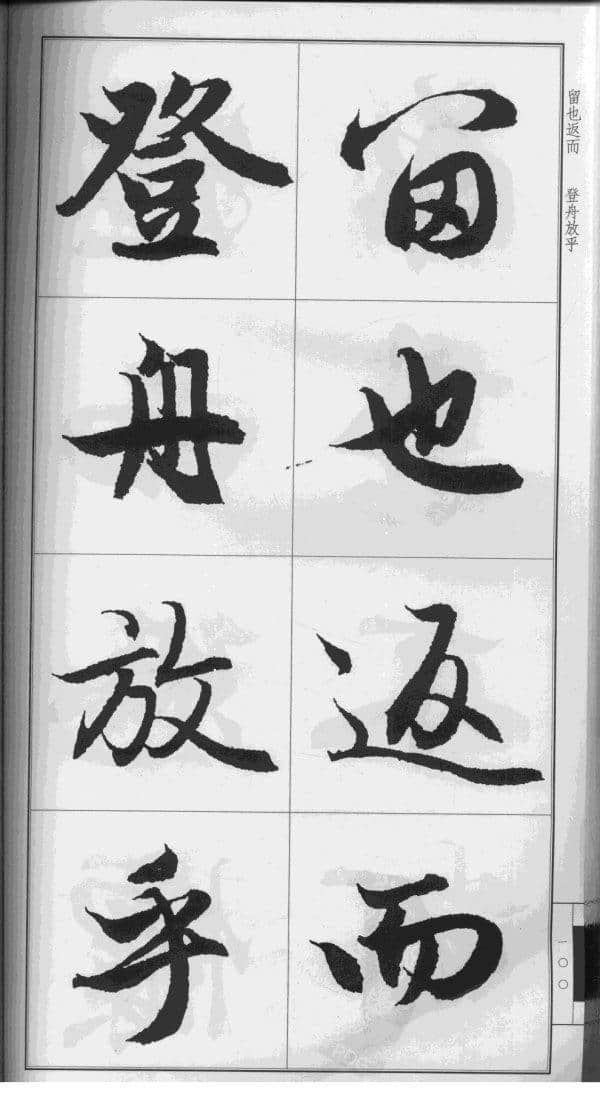 留也返而　登舟放乎
留也返而
登舟放乎
一〇〇